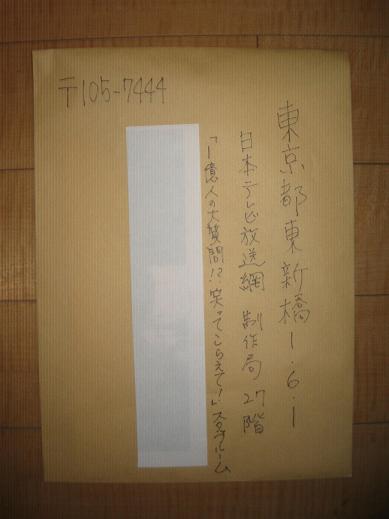 〒105-7444
東京都東新橋1.6.1
日本テレビ放送網 制作局 27階
「1億人の大質問!?笑ってこらえて!」スタッフルーム